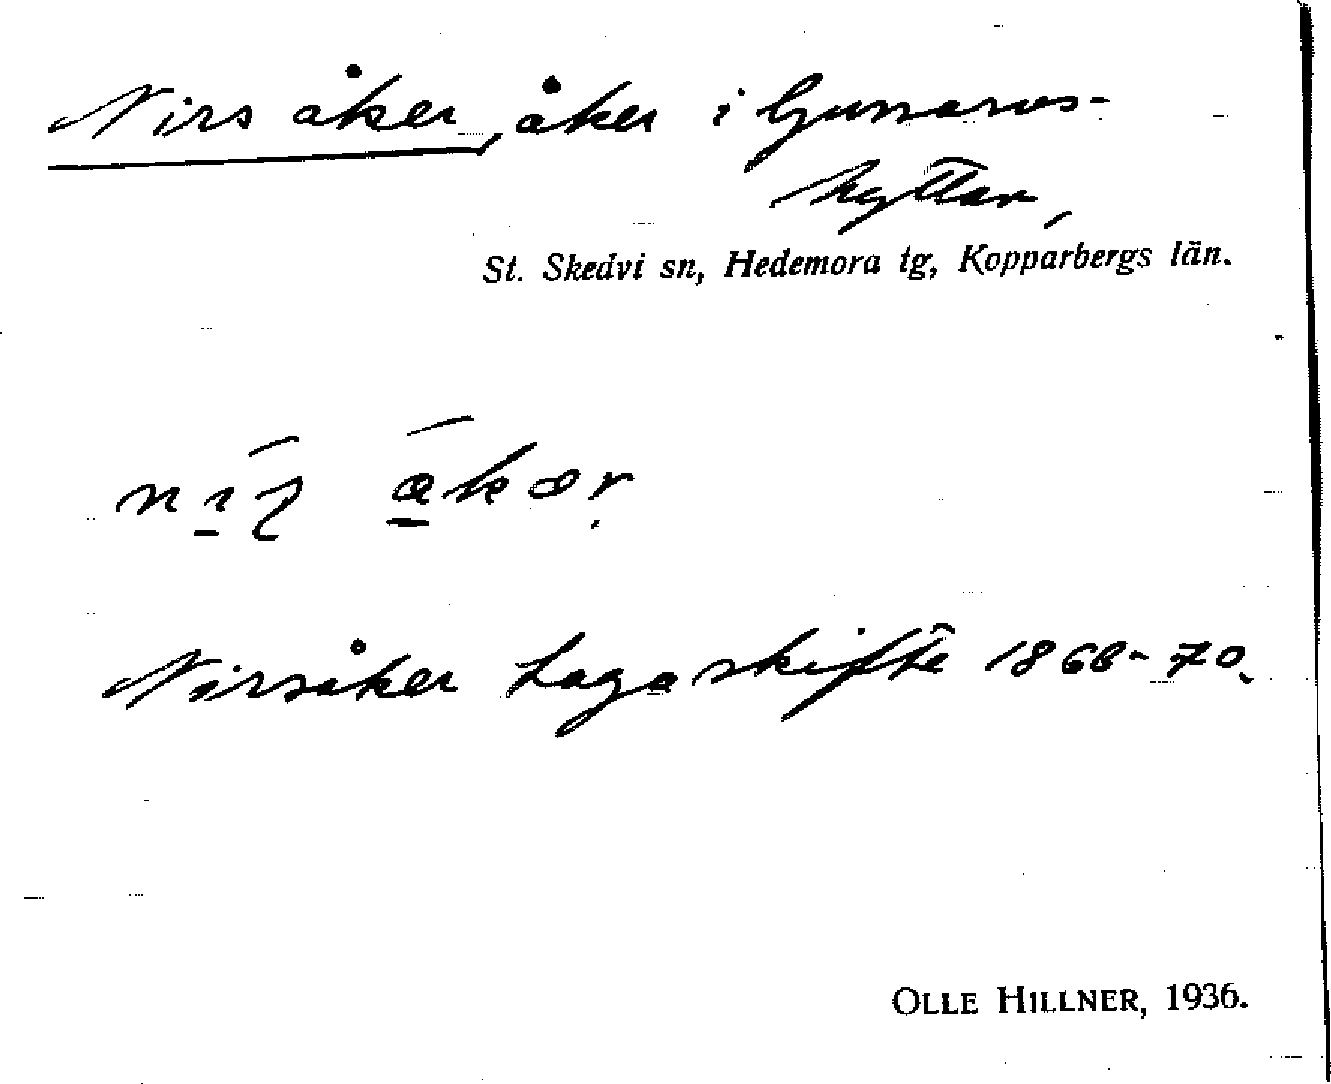 Nirs åker, åker i Gunnars-
hyttan,
St. Skedvi sn, Hedemora tg, Kopparbergs län.
Nirsåker Laga skifte 1868-70.
OLLE HILLNER, 1936.